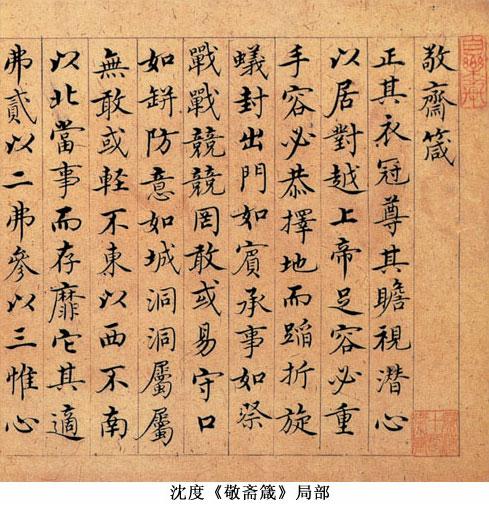 敬齋箴
正其衣冠尊其瞻視潜心
以居對越上帝足容必重
手容必恭擇地而蹈折旋
蟻封出門如賓承事如祭
戰戰競競罔敢或易守口
如缾防意如城洞洞屬屬
無敢或軽不東以西不南
以北當事而存靡它其適
弗貳以二弗參以三惟心
沈度《敬斋箴》局部